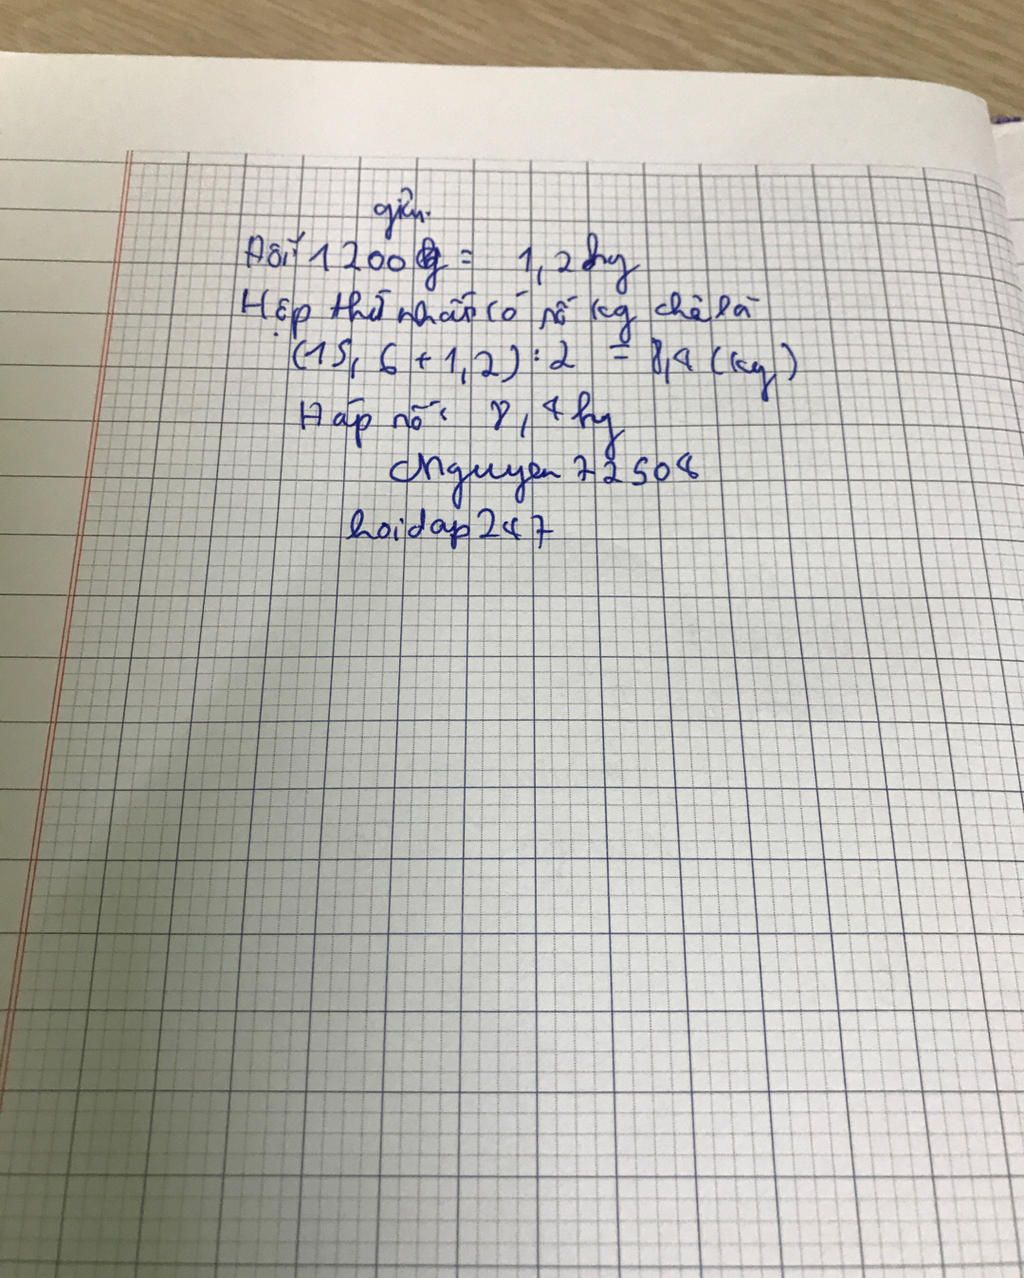 giải.
Đổi 1200g = 1,2kg
Hộp thứ nhất có số kg chè là
(15,6 + 1,2) : 2 = 8,4 (kg)
Đáp số: 8,4kg
Nguyen72508
hoidap247